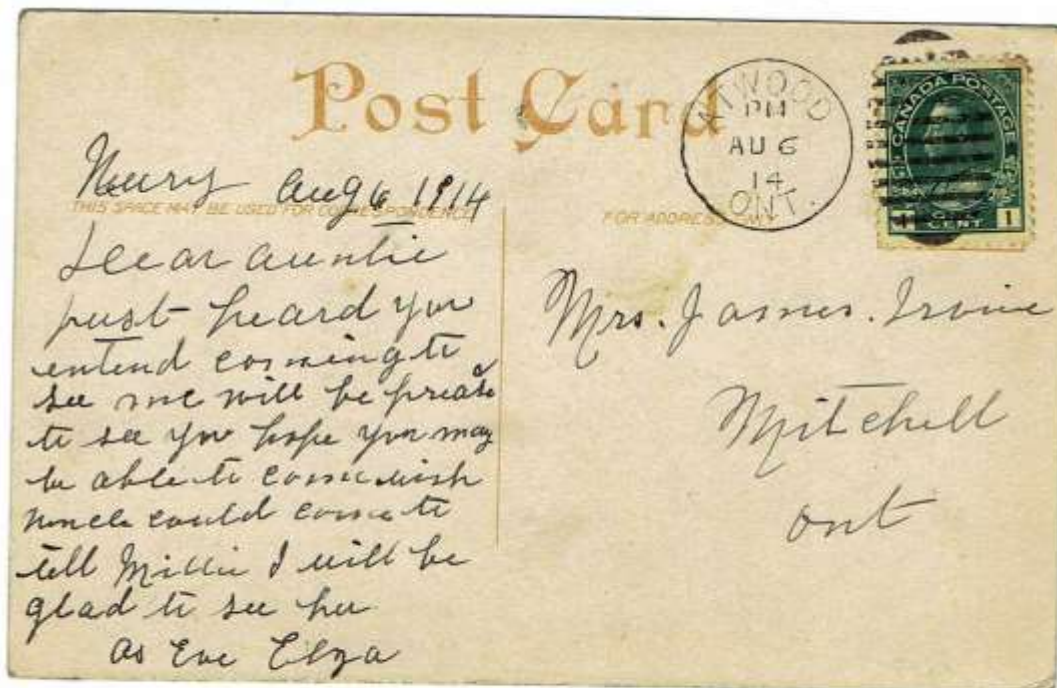 Post Card
ATWOOD
PM
AU 6
14
ONT.
CANADA POSTAGE
1 CENT 1
Newry Aug 6 1914
THIS SPACE MAY BE USED FOR CORRESPONDENCE
FOR ADDRESS ONLY
Dear auntie
just heard you
entend coming to
see me will be pleased
to see you hope you may
be able to come wish
uncle could come to
tell Millie I will be
glad to see her
as Eve Elza
Mrs. James. Irvine
Mitchell
Ont